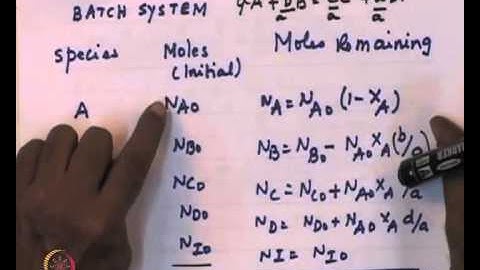 BATCH SYSTEM
Species Moles (Initial) Moles Remaining
A N_A0 N_A = N_A0 (1 - X_A)
N_B0 N_B = N_B0 - N_A0 X_A (b/a)
N_C0 N_C = N_C0 + N_A0 X_A /a
N_D0 N_D = N_D0 + N_A0 X_A d/a
N_I0 N_I = N_I0